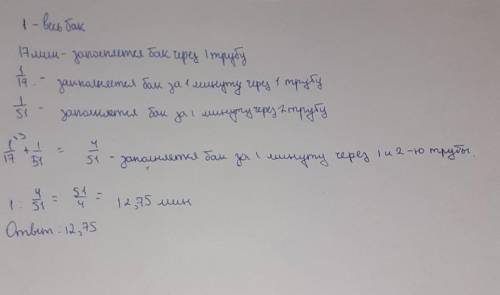 1 - весь бак
17 мин - заполняется бак через 1 трубу
1/17 - заполняется бак за 1 минуту через 1 трубу
1/51 - заполняется бак за 1 минуту через 2 трубу
1/17 + 1/51 = 4/51 - заполняется бак за 1 минуту через 1 и 2-ю трубы.
1 : 4/51 = 51/4 = 12,75 мин
Ответ: 12,75